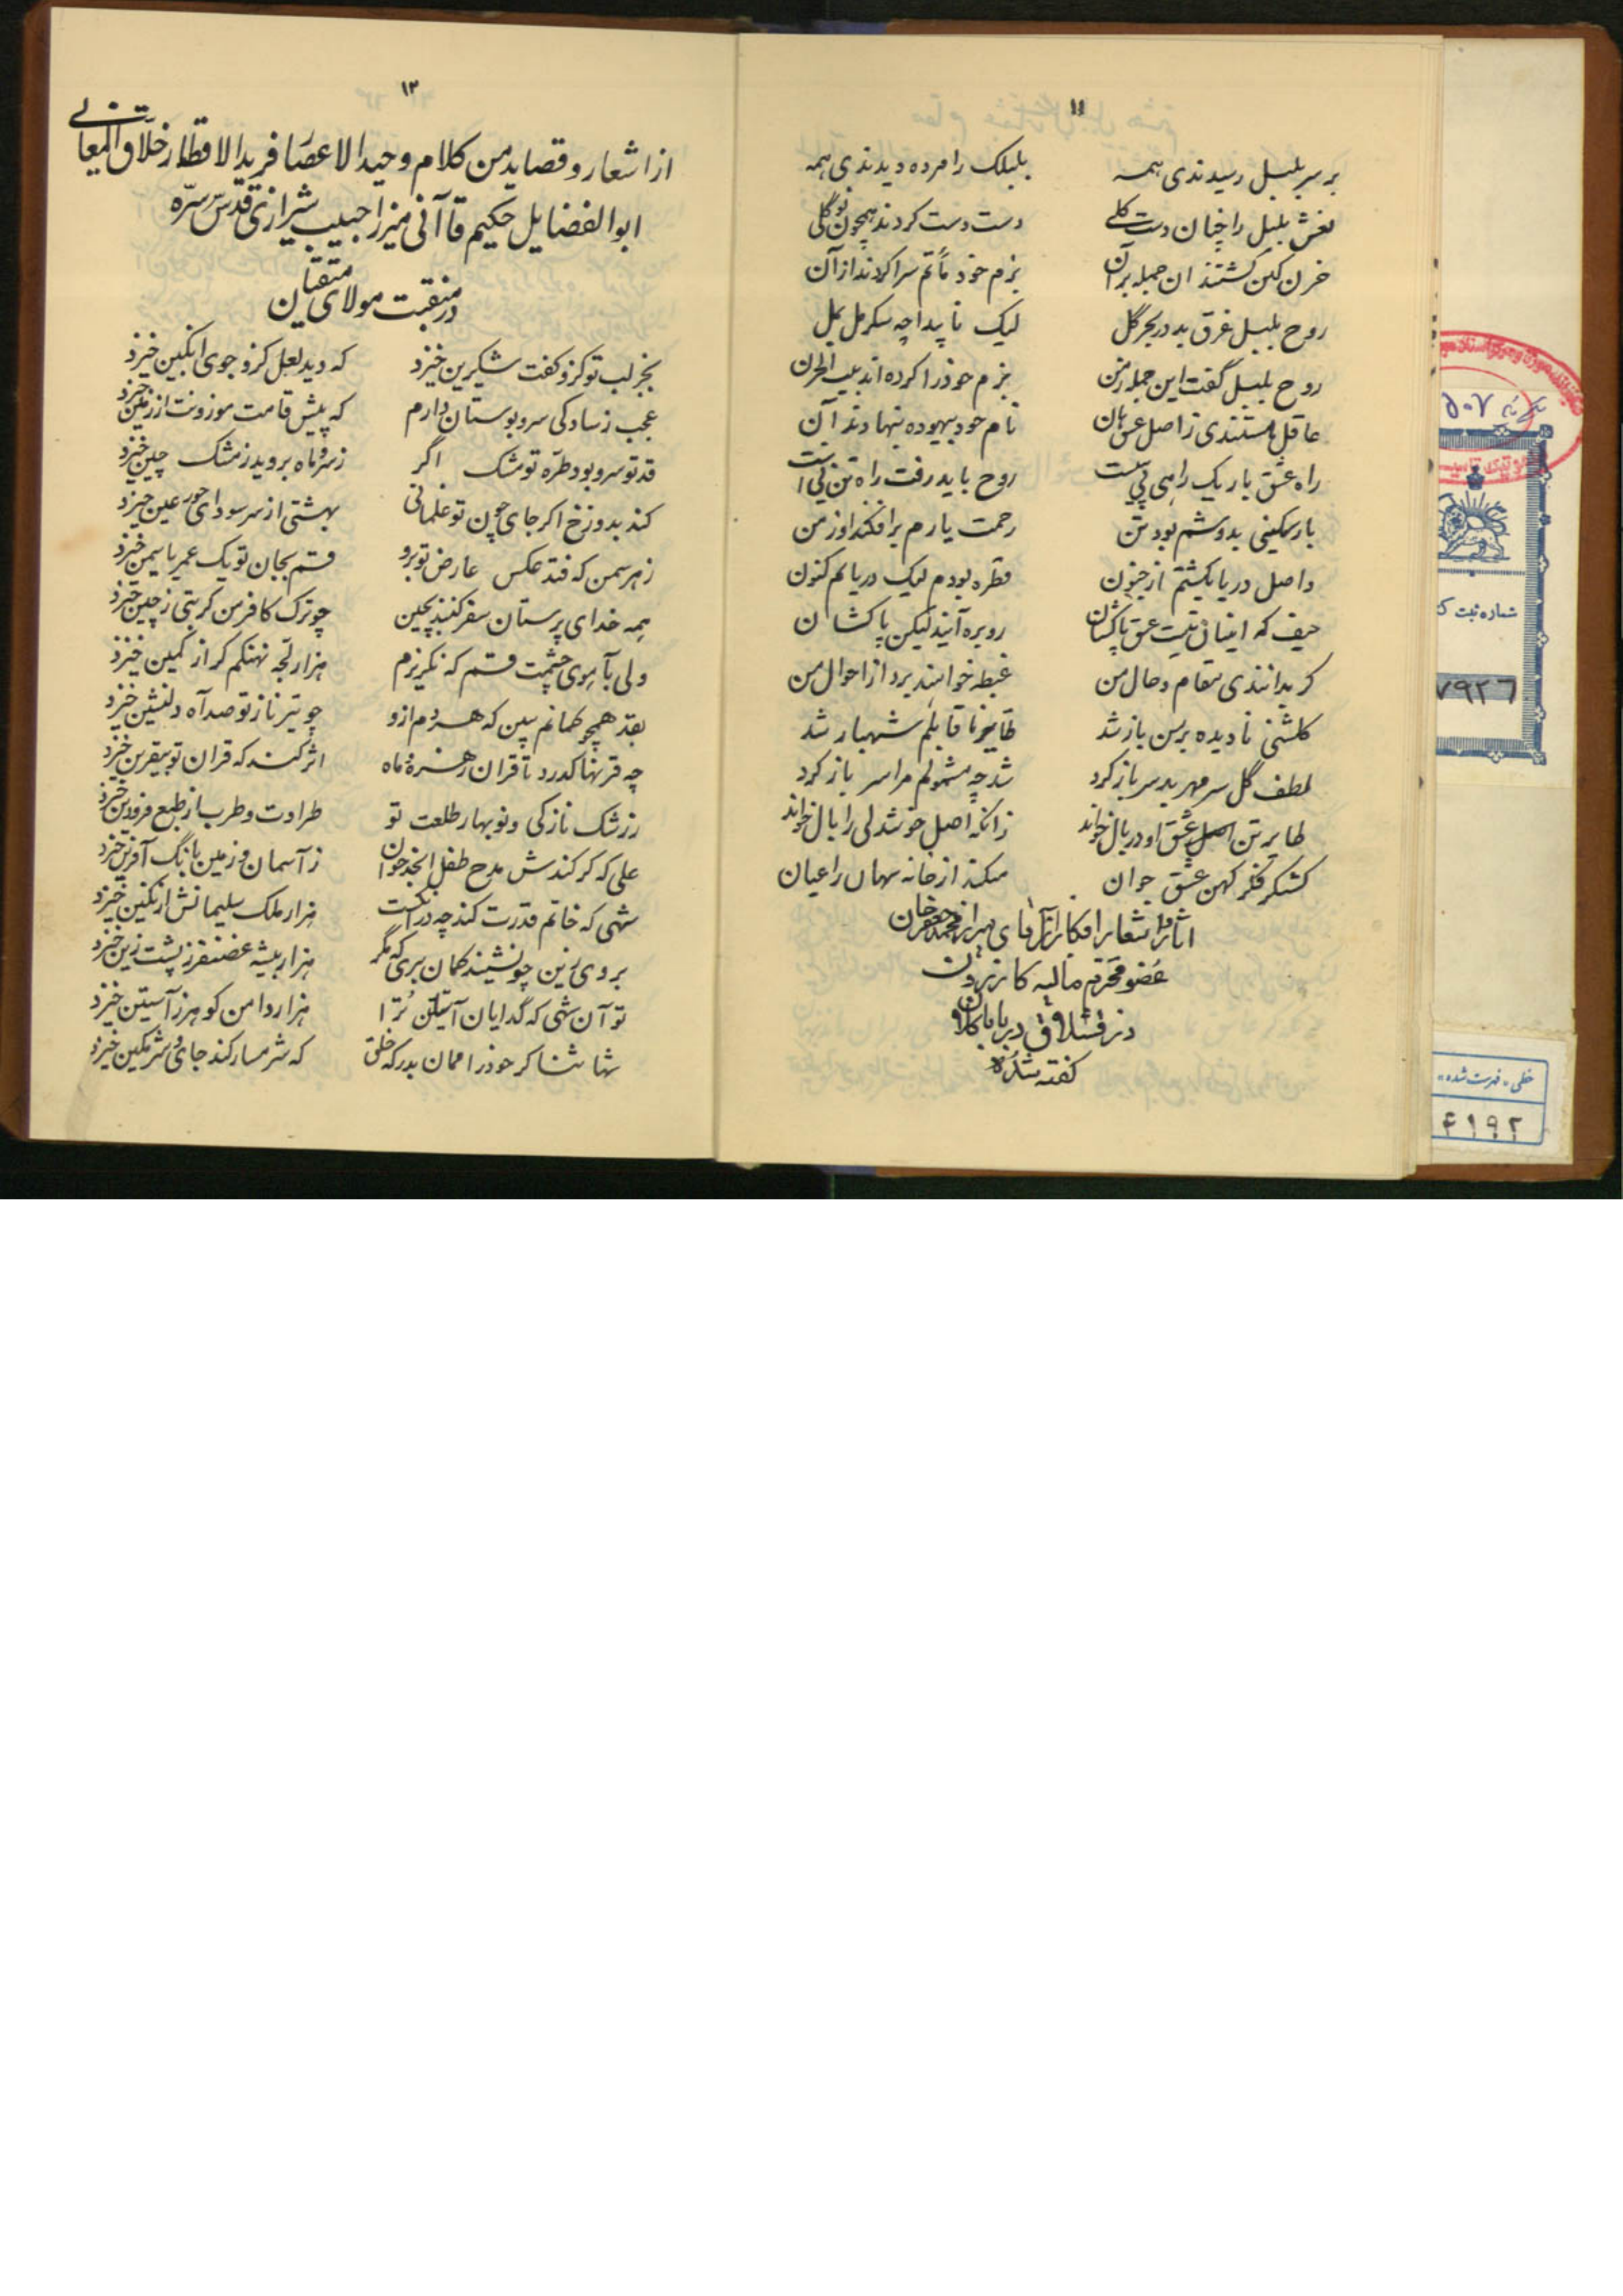 ۱۱
بر سر بلبل رسیدندی همه بلبلک را مرده دیدندی همه
نعش بلبل را چنان دست گلی دست دست کردند همچون نوگلی
بزم خود ماتم سرا کردند از آن
روح بلبل غرق بد در بحر گل لیک ناپیدا چه سکر مل بمل
روح بلبل گفت این جمله ز من بزم خود را کرده اند بیت الحزن
نام خود بیهوده بنهادند آن
راه عشق باریک راهی نی‌ست روح باید رفت راه تن نی است
بار سنگینی بدوشم بود تن رحمت یارم برافکند او ز من
واصل دریا بگشتم از جنون قطره بودم لیک دریایم کنون
حیف که اینان نیت عشق پاکشان رو بره آیند لیکن پا کشان
گر بدانندی مقام و حال من غبطه خواهند برد از احوال من
گلشنی نادیده بر من باز شد شهباز شد
لطف گل سر مهر بد سر باز کرد شد چه مشمولم مرا سر باز کرد
زانکه اصل خوشدلی را بال خواند
فکر کهن عشق جوان میکند از خانه نهان را عیان
محمد جعفر خان
عضو محترم مالیه کازرون
در قشلاق در باباکلان
گفته شده
۱۳
از اشعار و قصاید من کلام وحید الاعصار فرید الاقطار خلاق المعانی
ابوالفضایل حکیم قاآنی میرزا حبیب شیرازی قدس سره
در منقبت مولای متقیان
بجز لب تو کزو گفت شکرین خیزد که دید لعل کزو جوی انگبین خیزد
عجب ز سادگی سرو بوستان دارم که پیش قامت موزونت از زمین خیزد
قد تو سرو بود طره تو مشک اگر ز سرو ماه بروید ز مشک چین خیزد
کند بدوزخ اگر جای چون تو غلمانی بهشتی از سر سودای حور عین خیزد
ز هر سمن که فتد عکس عارض تو برو قسم بجان تو یک عمر یاسمین خیزد
همه خدای پرستان سفر کنند بچین چو ترک کافر من گر بتی ز چین خیزد
ولی بآهوی چشمت قسم که نگریزم هزار لجه نهنگم گر از کمین خیزد
بقد همچو کمانم ببین که هر دم ازو چو تیر ناز تو صد آه دلنشین خیزد
چه قرنها گذرد تا قران زهره و ماه اثر کند که قران تو بیقرین خیزد
ز رشک نازکی و نوبهار طلعت تو طراوت و طرب از طبع فرودین خیزد
علی که گر کندش مدح طفل ابجد خوان ز آسمان و زمین بانگ آفرین خیزد
شهی که خاتم قدرت کند چه در انگشت هزار ملک سلیمانش از نگین خیزد
بروی زین چو نشیند گمان بری که مگر هزار بیشه غضنفر ز پشت زین خیزد
تو آن شهی که گدایان آستان ترا هزار دامن گوهر ز آستین خیزد
شها ثناگر خود را ممان بدرگه خلق که شرمسار کند جای و شرمگین خیزد
شماره ثبت
۷۹۲۶
خطی «فهرست شده»
۴۱۹۲